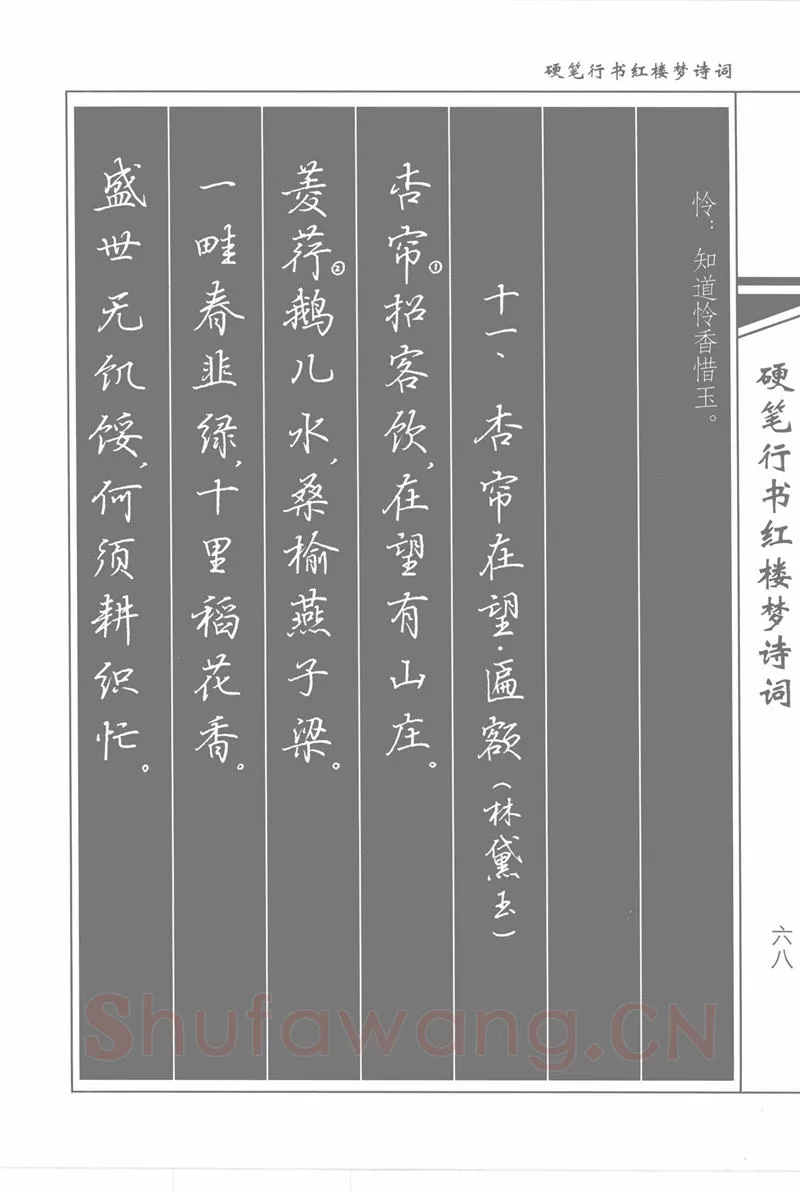 硬笔行书红楼梦诗词
硬笔行书红楼梦诗词
六八
怜：知道怜香惜玉。
十一、杏帘在望·匾额（林黛玉）
杏帘①招客饮，在望有山庄。
菱荇②鹅儿水，桑榆燕子梁。
一畦春韭绿，十里稻花香。
盛世无饥馁，何须耕织忙。
Shufawang.CN